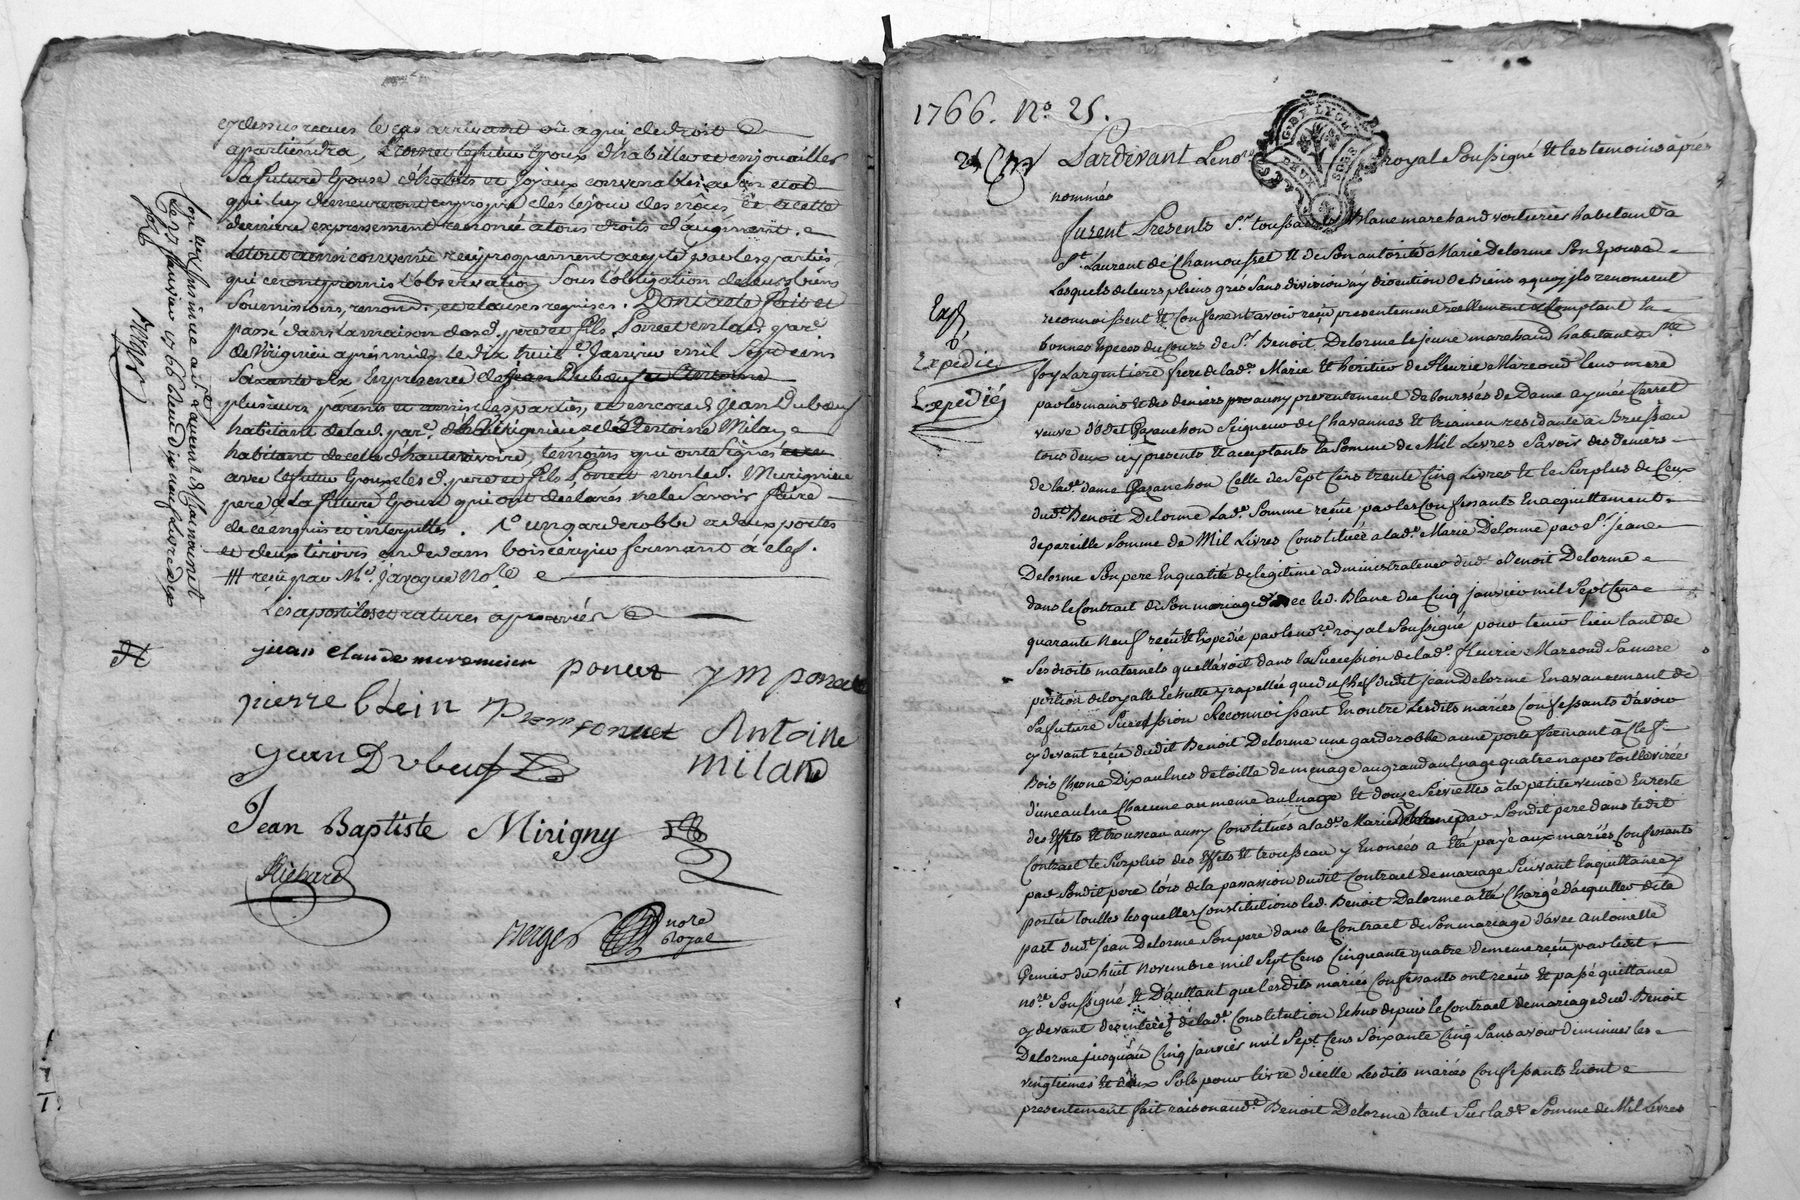 cydessus recues le cas arrivant où a qui de droit
apartiendra, Promet le futur Epoux d'habiller et enjouailler
Sa future Epouse d'habits et Joyaux convenables a son etat
qui luy demeureront en propre dès le jour des nôces et a cette
derniere expressement renoncé a tous droits d'augment.
le tout ainsi convenu reciproquement accepté par les parties
qui en ont promis l'observation Sous l'obligation de leurs biens
Soumissions, renond. et clauses requises. Dont acte fait et
passé dans la maison desd. pere et fils Poncet en lad. par.e
de Virignieu après midy le dix huit.e Janvier mil Sept cens
Soixante Six En presence de Jean Dubœuf et Antoine
plusieurs parents et amis des parties, et encore de Jean Dubœuf
habitant de lad. par.e de Virignieu et d'Antoine Milan
habitant de celle d'hauterivoire, témoins qui ont signés
avec le futur Epoux les d. pere et fils Poncet non led. Mirignieu
pere et La future Epouse qui ont declarés ne le savoir faire
de ce enquis et interpellés. 1.o un garderobbe a deux portes
et deux tiroirs au dedans bois cérizier fermant à clef.
reçu par M.e Javogue No.re
Les apostiles et ratures aprouvées
jean claude
poncet
y m poncet
pierre blein
poncet
Antoine
milan
jean Dubeuf
Jean Baptiste Mirigny
Richard
Berger no.re Royal
Berger
1766. N.o 25.
Pardevant Le no.re royal Soussigné Et les temoins après
nommés
furent Presents S.r toussaint Blanc marchand voiturier habitant à
S.t Laurent de Chamousset Et de Son autorité Marie Delorme Son Epouse
Lesquels de leurs pleins grés Sans division ny discution de Biens a quoy ils renoncent
reconnoissent Et Confessent avoir reçu presentement réellement Comptant En
bonnes Especes du Cours de S.r Benoit Delorme le jeune marchand habitant a S.te
foy Largentiere frere de lad.e Marie Et heritier de fleurie Marcoud leur mere
par les mains Et des deniers pris presentement de boursés de Dame aymée Carret
veuve d'Odet Gazanchon Seigneur de Chavannes Et residante à Brussieu
tous deux icy presents Et aceptants la Somme de Mil Livres Savoir des deniers
de lad.e dame Gazanchon Celle de Sept Cens trente Cinq Livres Et le Surplus de Ceux
dud.t Benoit Delorme Lad.e Somme reçue par les Confessants En acquittement
de pareille Somme de Mil Livres Constituée a lad.e Marie Delorme par S.r jean
Delorme Son pere En qualité de legitime administrateur dud. Benoit Delorme
dans le Contrat de Son mariage avec led. Blanc du Cinq janvier mil Sept Cens
quarante Neuf reçu Et Expedié par le no.re royal Soussigné pour tenir lieu tant de
Ses droits maternels qu'elle avoit dans la Succession de lad.e fleurie Marcoud Sa mere
portion de loyalle Echutte y rapellée que du Chef dudit jean Delorme En avancement de
Sa future Succession Reconnoissant En outre Lesdits mariés Confessants d'avoir
cy devant reçu dudit Benoit Delorme une garderobbe a une porte fermant à Clef
Bois Chesne Dix aulnes de toille de menage au grand aulnage quatre napes toille
d'une aulne Chacune au meme aulnage Et douze Serviettes à la petite venise En reste
des Effets Et trousseau aussy Constitués a lad.e Marie Delorme par Sondit pere dans ledit
Contrat le Surplus des Effets Et trousseau y Enoncés a Eté payé aux mariés Confessants
par Sondit pere lors de la passassion dudit Contrat de mariage Suivant la quittance y
portée toutes lesquelles Constitutions led. Benoit Delorme a Eté Chargé d'acquitter de la
part dud.t jean Delorme Son pere dans le Contrat de Son mariage d'avec Antoinette
du huit novembre mil Sept Cens Cinquante quatre de meme reçu par ledit
no.re Soussigné Et D'autant que lesdits mariés Confessants ont reçus Et passé quittance
cy devant des interets de lad.e Constitution Echus depuis le Contrat de mariage dud. Benoit
Delorme jusqu'au Cinq janvier mil Sept Cens Soixante Cinq Sans avoir diminué les
vingtiemes Et deux Sols pour livre d'icelle Lesdits mariés Confessants En ont
presentement fait raison aud.t Benoit Delorme tant Sur lad.e Somme de Mil Livres
Exp.
Expedié
Expedié